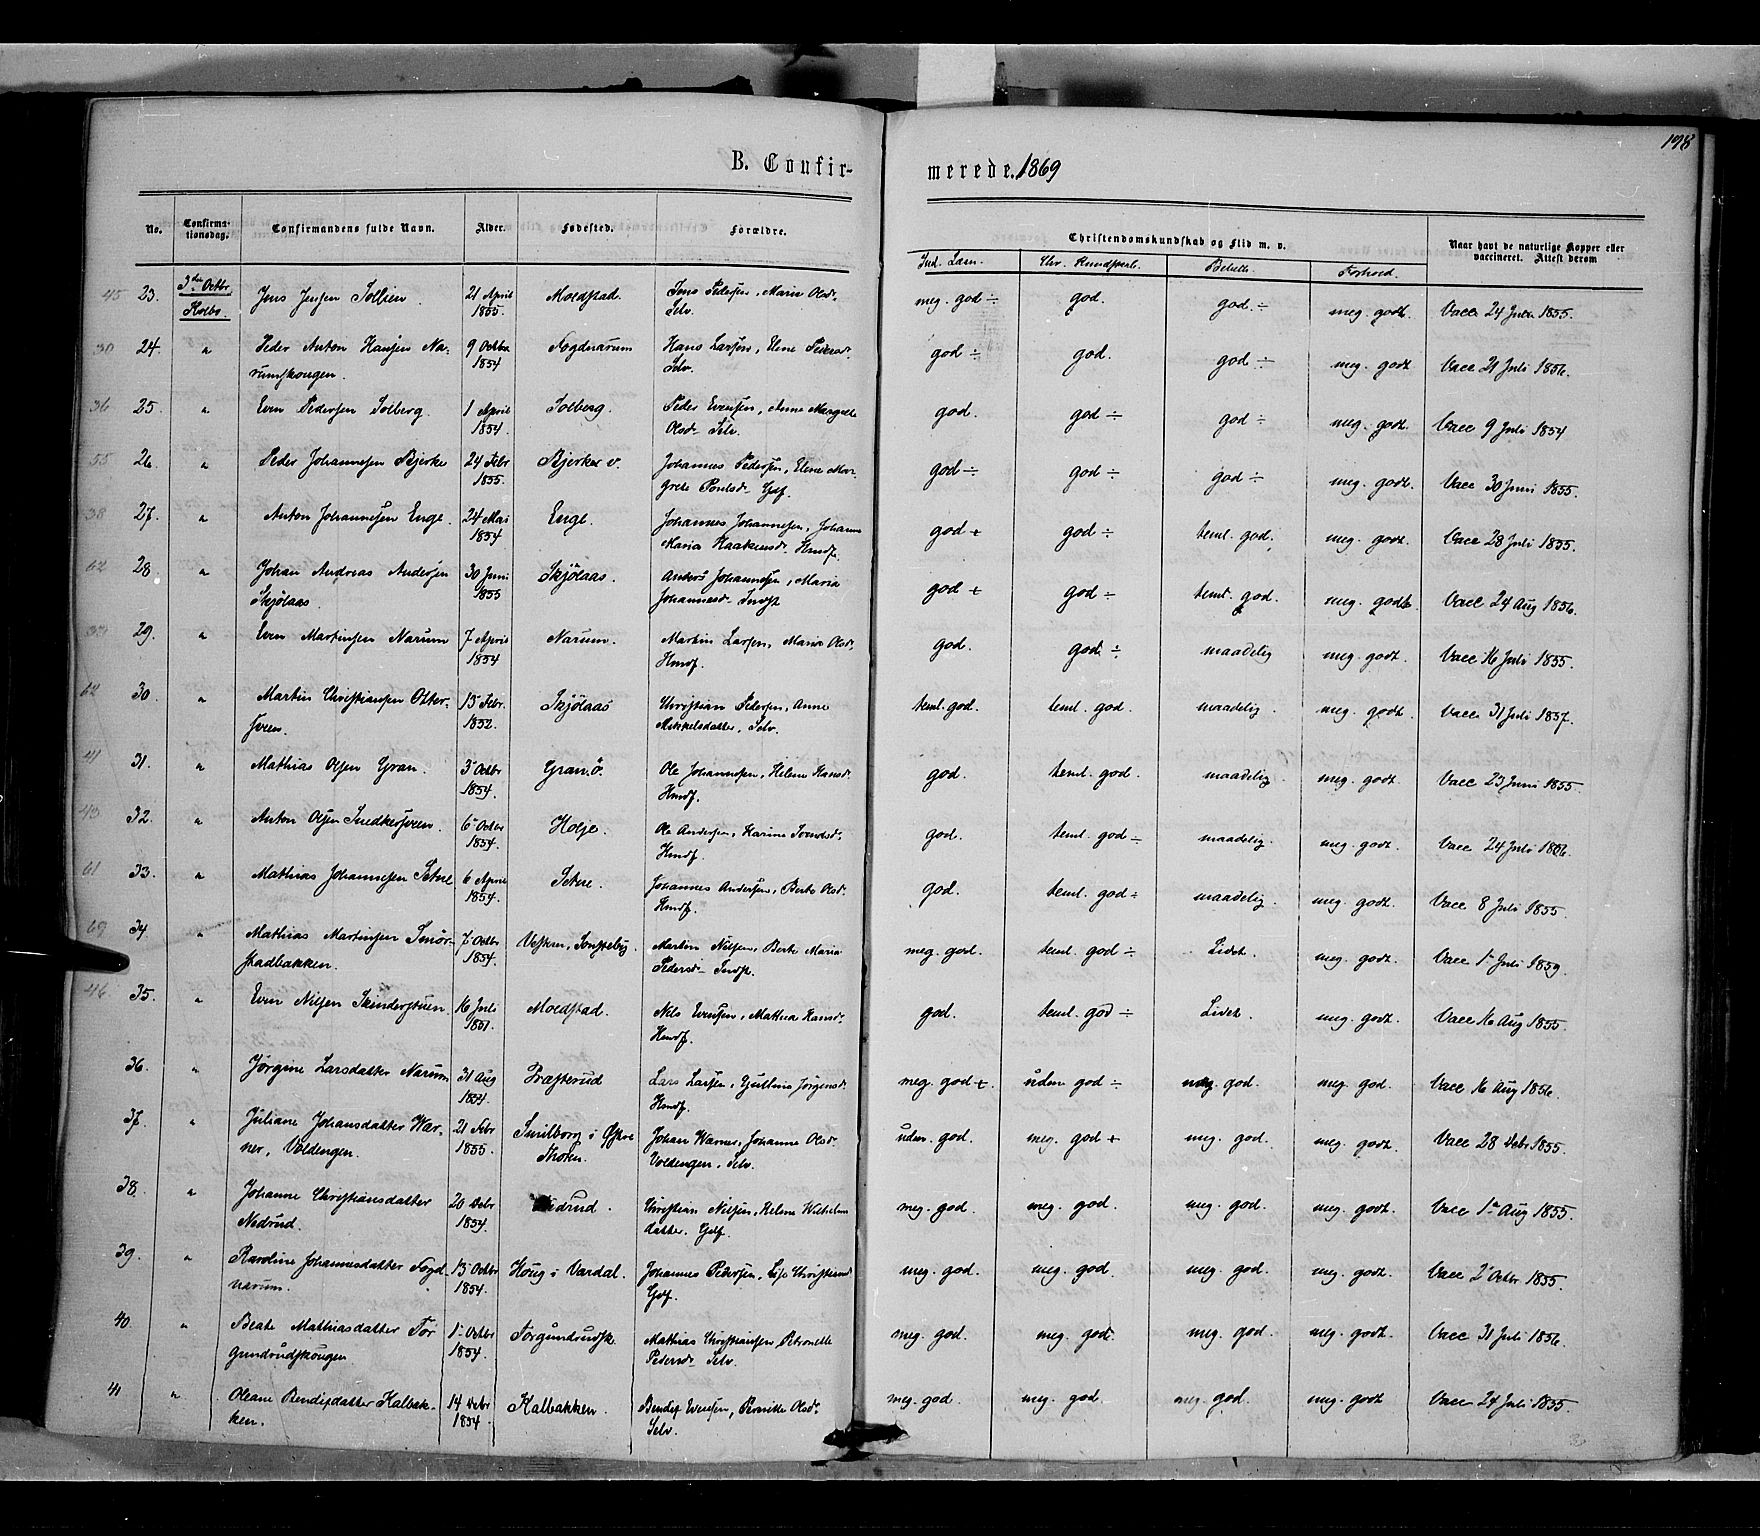 198
B. Confirmerede. 1869
No. Confirmationsdag. Confirmandens fulde Navn. Alder. Fødested. Forældre. Christendomskundskab og Flid m. v. Naar havt de naturlige Kopper eller vaccineret. Attest derom
Ind. Læsn. Chr. Kundskab. Forhold.
45 23. 3die Octbr. Jens Jensen Sollien. 21 April Moedstad. Jens Pedersen, Maria Olsd. meg. god ÷ god. god. ÷ meg. godt. Vacc 24 Juli 1855.
Kolbo. 1855. Selv.
24. " Peder Anton Hansen Na- 9 Octbr Fogdnarum Hans Larsen, Elene Pedersd. god ÷ god. god ÷ meg. godt Vacc 21 Juli 1856.
rumskougen. 1854 Selv.
36 25. " Even Pedersen Solberg. 1 April Solberg. Peder Evensen, Anne Margrethe god. god ÷ god ÷ meg. godt. Vacc 9 Juli 1854
1854. Olsd. Selv.
55 26. " Peder Johannesen Bjerke 24 Febr Bjerke v. Johannes Pedersen, Elene Mar- god ÷ god ÷ god ÷ meg. godt. Vacc 30 Juni 1855.
1855. grete Poulsd. Gdf.
38 27. " Anton Johannesen Enge. 24 Mai Enge. Johannes Johannesen, Johanne god + god ÷ teml. god. meg. godt. Vacc 28 Juli 1855.
1854 Maria Haakensd. Hmdf.
62 28. " Johan Andreas Andersen 30 Juni Skjölaas. Anders Johannesen, Maria god + god ÷ teml. god. meg. godt. Vacc 24 Aug 1856.
Skjölaas. 1855 Johannesd. Indst
29. " Even Martinsen Narum 7 April Narum. Martin Larsen, Maria Olsd. god. god ÷ maadelig meg. godt. Vacc 16 Juli 1855.
1854 Hmdf.
62 30. " Martin Christiansen Otter- 15 Febr. Skjölaas Christian Pedersen, Anne teml. god. teml. god. maadelig. meg. godt. Vacc 31 Juli 1857.
sveen. 1852. Mikkelsdatter, Selv.
41 31. " Mathias Olsen Gran. 3 Octbr Gran. ö. Ole Johannesen, Helene Hansd. god. teml. god. maadelig meg. godt. Vacc 23 Juni 1855.
1854. Hmdf.
43 32. " Anton Olsen Snedkersveen. 6 Octbr Holje. Ole Andersen, Karine god. teml. god ÷ maadelig. meg. godt. Vacc 24 Juli
1854. Hmdf.
61 33. " Mathias Johannesen Setne 6 April Setne. Johannes Andersen, Berte Olsd. god. teml. god ÷ maadelig. meg. godt. Vacc 8 Juli 1855.
1854. Hmdf.
69 34. " Mathias Martinsen Smör- 7 Octbr Vestren, Martin Nilsen, Berte Maria meg. god. teml. god ÷ Lidet. meg. godt. Vacc 1 Juli 1859.
stadbakken. 1854. Pedersd. Indst.
46 35. " Even Nilsen Skinderstuen 16 Juli Moedstad. Nils Evensen, Mathea Hansd. god. teml. god ÷ Lidet. meg. godt. Vacc 16 Aug 1855.
Hmdf.
36. " Jörgine Larsdatter Narum 31 Aug Præsterud Lars Larsen, Jörgensd. meg. god +. üdm. god ÷ meg. god. meg. god. Vacc 16 Aug 1856.
1854. Hmdf.
37. " Juliane Johansdatter War- 21 Febr Smilborg i Johan Warner, Johanne Olsd. üdm. god. meg. god + meg. god. meg. godt. Vacc 28 Debr 1855.
ner, Voldengen. 1855. Thoten. Voldengen, Selv.
38. " Johanne Christiansdatter 20 Debr Nedrud. Christian Nilsen, Helene Wilhelms meg. god. meg. god. meg. god. meg. godt. Vacc 1 Aug 1855.
Nedrud. 1854. datter. Gdf.
39. " Karoline Johannesdatter Fogd- 15 Octbr Houg i Vardal. Johannes Pedersen, Lise Christiansd meg. god. meg. god. meg. god. meg. godt. Vacc 2 Octbr 1855.
narum. 1854. Gdf.
40. " Beate Mathiasdatter Tor 1 Octbr Torgundrudsk. Mathias Christiansen, Petronelle meg. god. meg. god. meg. god. meg. godt. Vacc 31 Juli 1856.
gundrudskougen 1854. Pedersd. Selv.
41 " Oleane Bendixdatter Kalbak- 14 Debr Kalbakken. Bendix Evensen, Pernille Olsd. meg. god. meg. god. meg. god. meg. godt Vacc 24 Juli 1855.
ken. 1854. Selv.